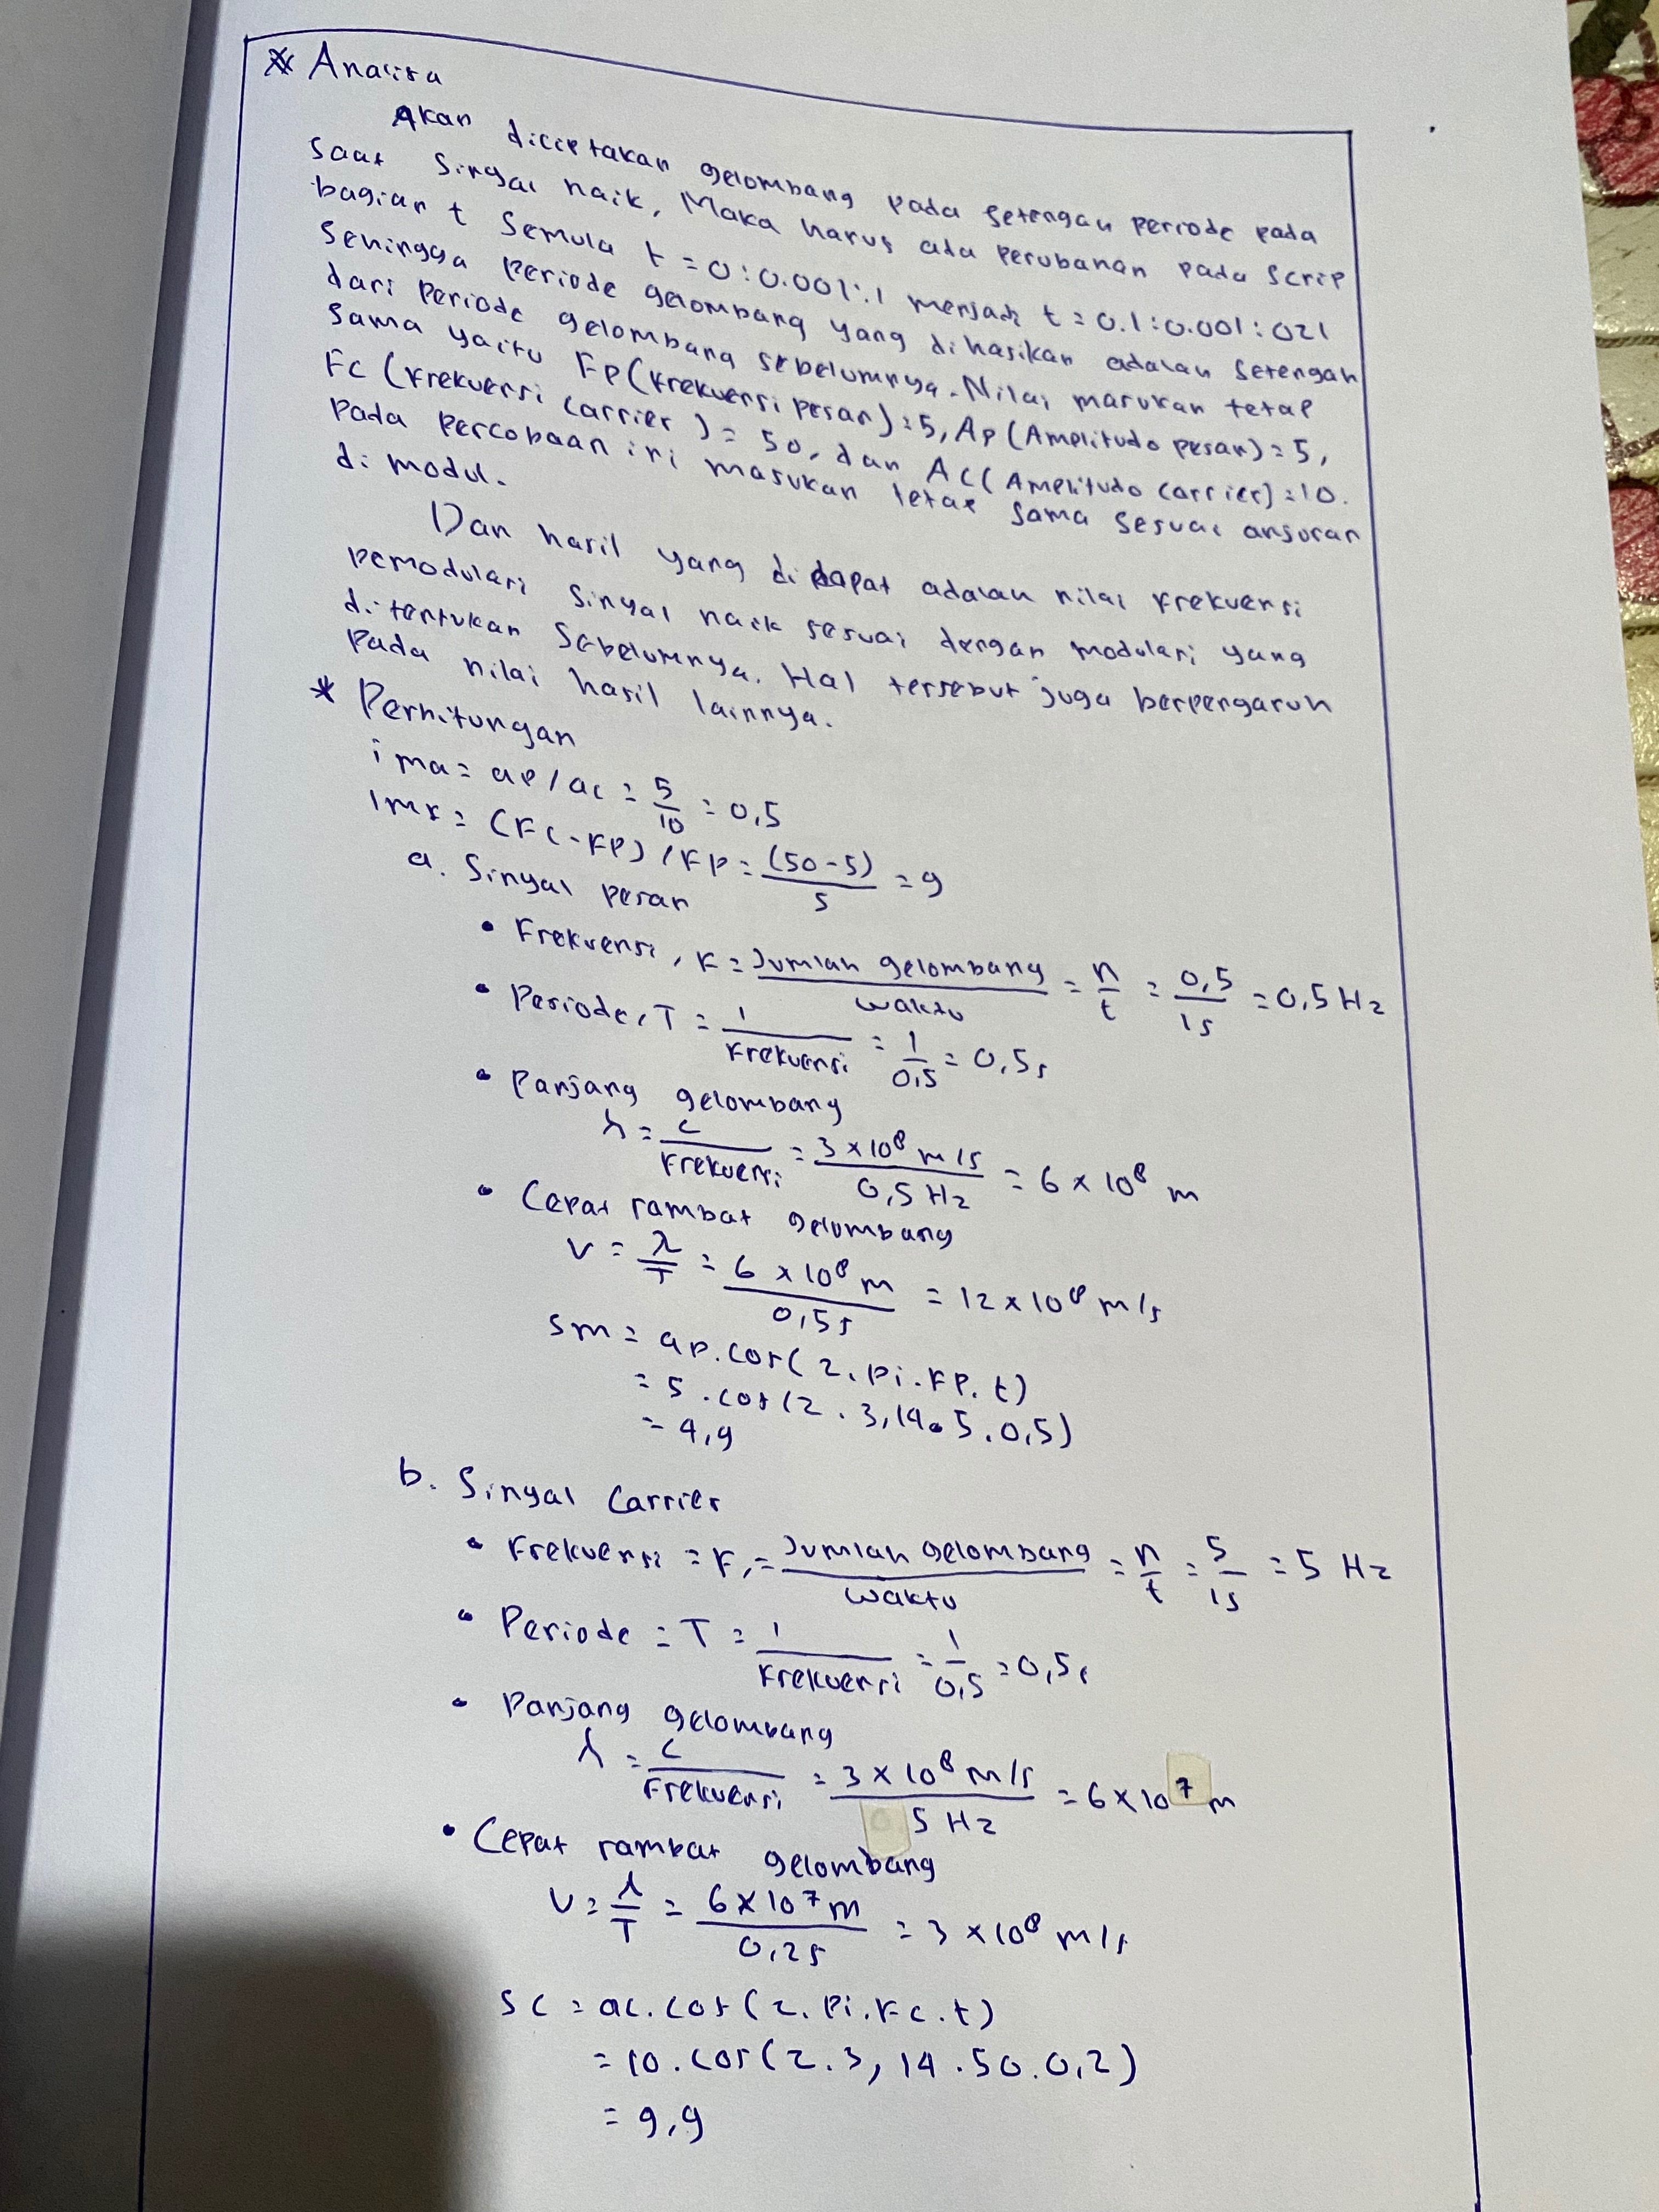 * Analisa
Akan diciptakan gelombang pada setengah periode pada
saat sinyal naik, Maka harus ada perubahan pada scrip
bagian t semula t = 0:0.001:1 menjadi t = 0.1:0.001:021
sehingga periode gelombang yang dihasikan adalah setengah
dari periode gelombang sebelumnya. Nilai masukan tetap
sama yaitu Fp (Frekuensi pesan) = 5, Ap (Amplitudo pesan) = 5,
Fc (Frekuensi carrier) = 50, dan Ac (Amplitudo carrier) = 10.
Pada percobaan ini masukan tetap sama sesuai anjuran
di modul.
Dan hasil yang didapat adalah nilai frekuensi
pemodulasi sinyal naik sesuai dengan modulasi yang
ditentukan sebelumnya. Hal tersebut juga berpengaruh
pada nilai hasil lainnya.
* Perhitungan
ima = ap/ac = 5/10 = 0,5
imf = (Fc-Fp)/Fp = (50-5)/5 = 9
a. Sinyal pesan
• Frekuensi, F = Jumlah gelombang/waktu = n/t = 0,5/1s = 0,5 Hz
• Periode, T = 1/Frekuensi = 1/0,5 = 0,5s
• Panjang gelombang
λ = c/Frekuensi = 3 x 10⁸ m/s / 0,5 Hz = 6 x 10⁸ m
• Cepat rambat gelombang
v = λ/T = 6 x 10⁸ m / 0,5s = 12 x 10⁸ m/s
sm = ap.cos(2.pi.Fp.t)
= 5.cos(2.3,14.5.0,5)
= 4,9
b. Sinyal Carrier
• Frekuensi = F, = Jumlah gelombang/waktu = n/t = 5/1s = 5 Hz
• Periode = T = 1/Frekuensi = 1/0,5 = 0,5s
• Panjang gelombang
λ = c/Frekuensi = 3 x 10⁸ m/s / 5 Hz = 6 x 10⁷ m
• Cepat rambat gelombang
v = λ/T = 6 x 10⁷ m / 0,2s = 3 x 10⁸ m/s
sc = ac.cos(2.Pi.Fc.t)
= 10.cos(2.3,14.50.0,2)
= 9,9